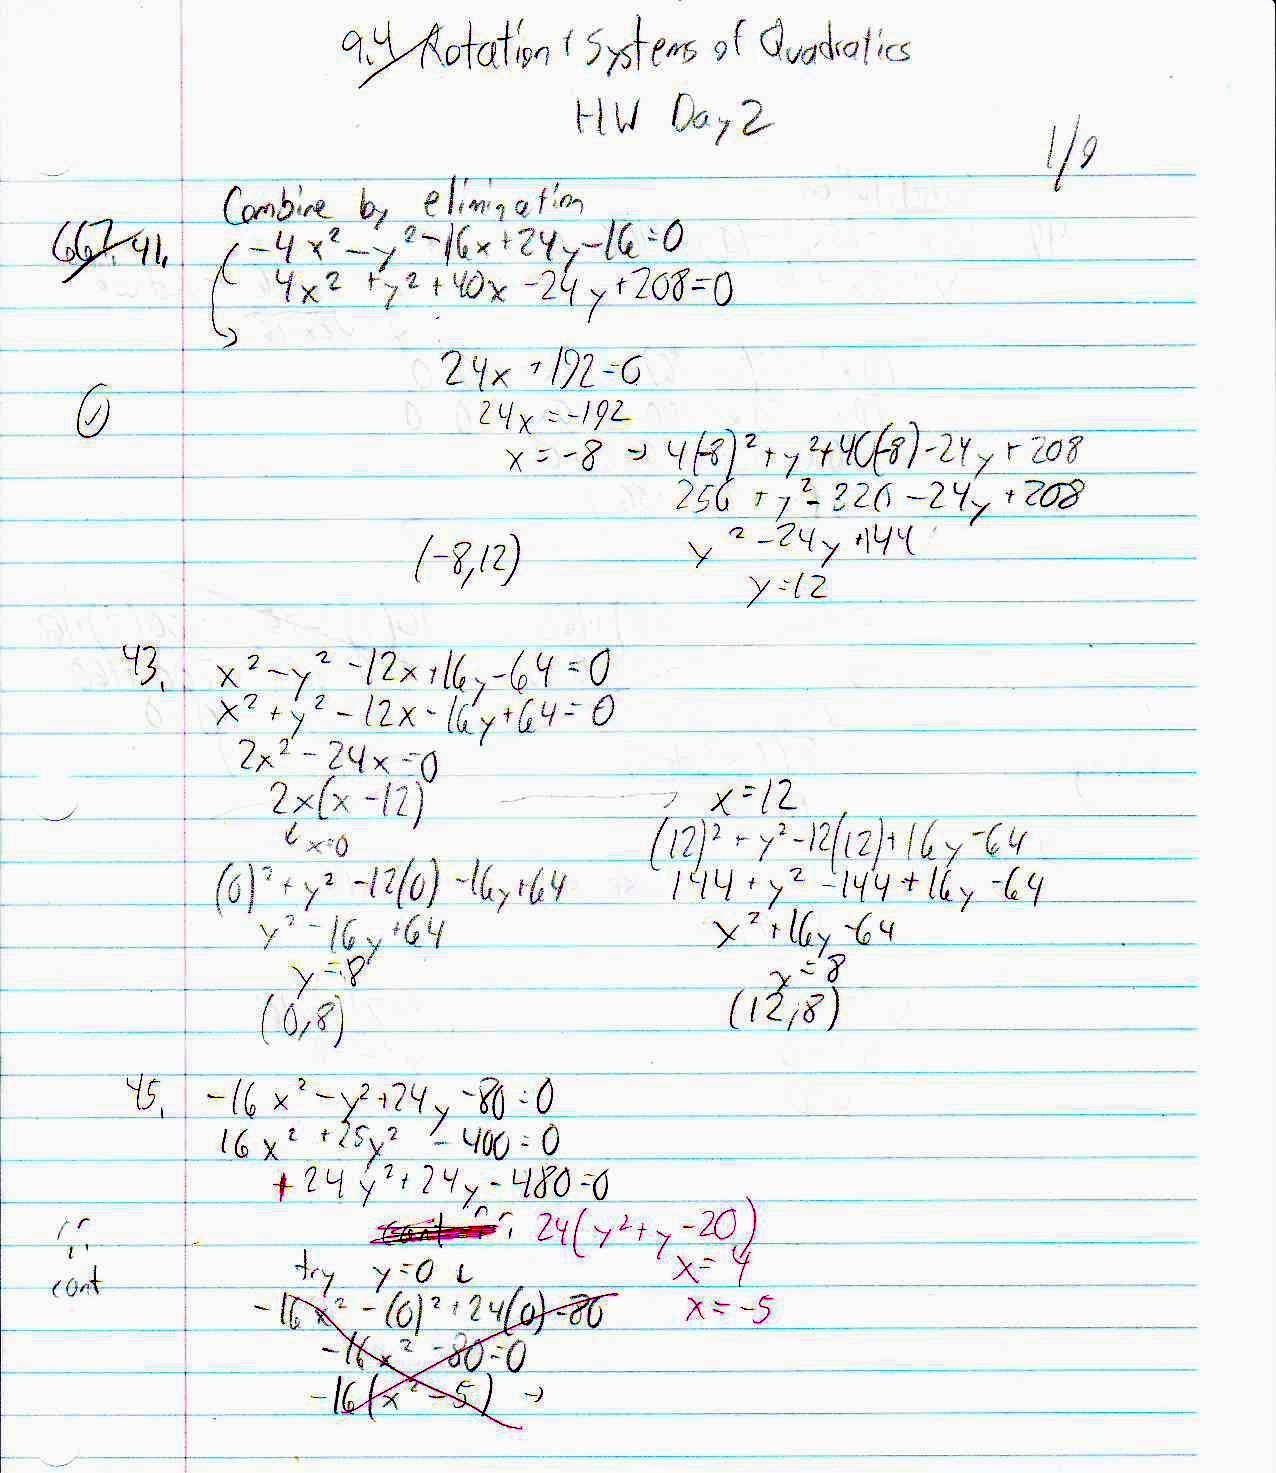 9.4 Rotation & Systems of Quadratics
HW Day 2
1/9
Combine by elimination
667. 41. -4x² - y² - 16x + 24y - 16 = 0
4x² + y² + 40x - 24y + 208 = 0
24x + 192 = 0
24x = -192
x = -8 → 4(-8)² + y² + 40(-8) - 24y + 208
256 + y² - 320 - 24y + 208
y² - 24y + 144
(-8,12)
y = 12
43. x² - y² - 12x + 16y - 64 = 0
x² + y² - 12x - 16y + 64 = 0
2x² - 24x = 0
2x(x - 12) → x = 12
x=0
(12)² + y² - 12(12) + 16y - 64
(0)² + y² - 12(0) - 16y + 64
144 + y² - 144 + 16y - 64
y² - 16y + 64
x² + 16y - 64
y = 8
x = 8
(0,8)
(12,8)
45. -16x² - y² + 24y - 80 = 0
16x² + 25y² - 400 = 0
+24y² + 24y - 480 = 0
24(y² + y - 20)
cont
try y = 0
x = 4
-16x² - (0)² + 24(0) - 80
x = -5
-16x² - 80 = 0
-16(x² - 5) →